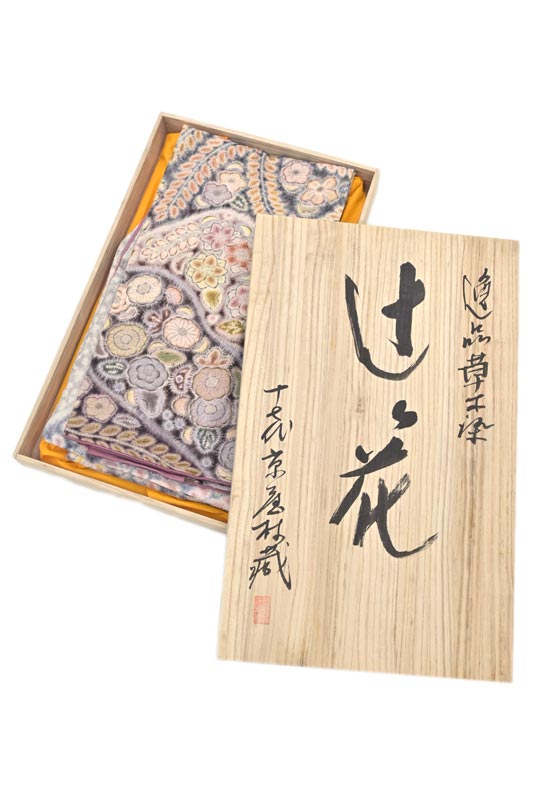 逸品草木染
辻が花
十七代京屋林蔵